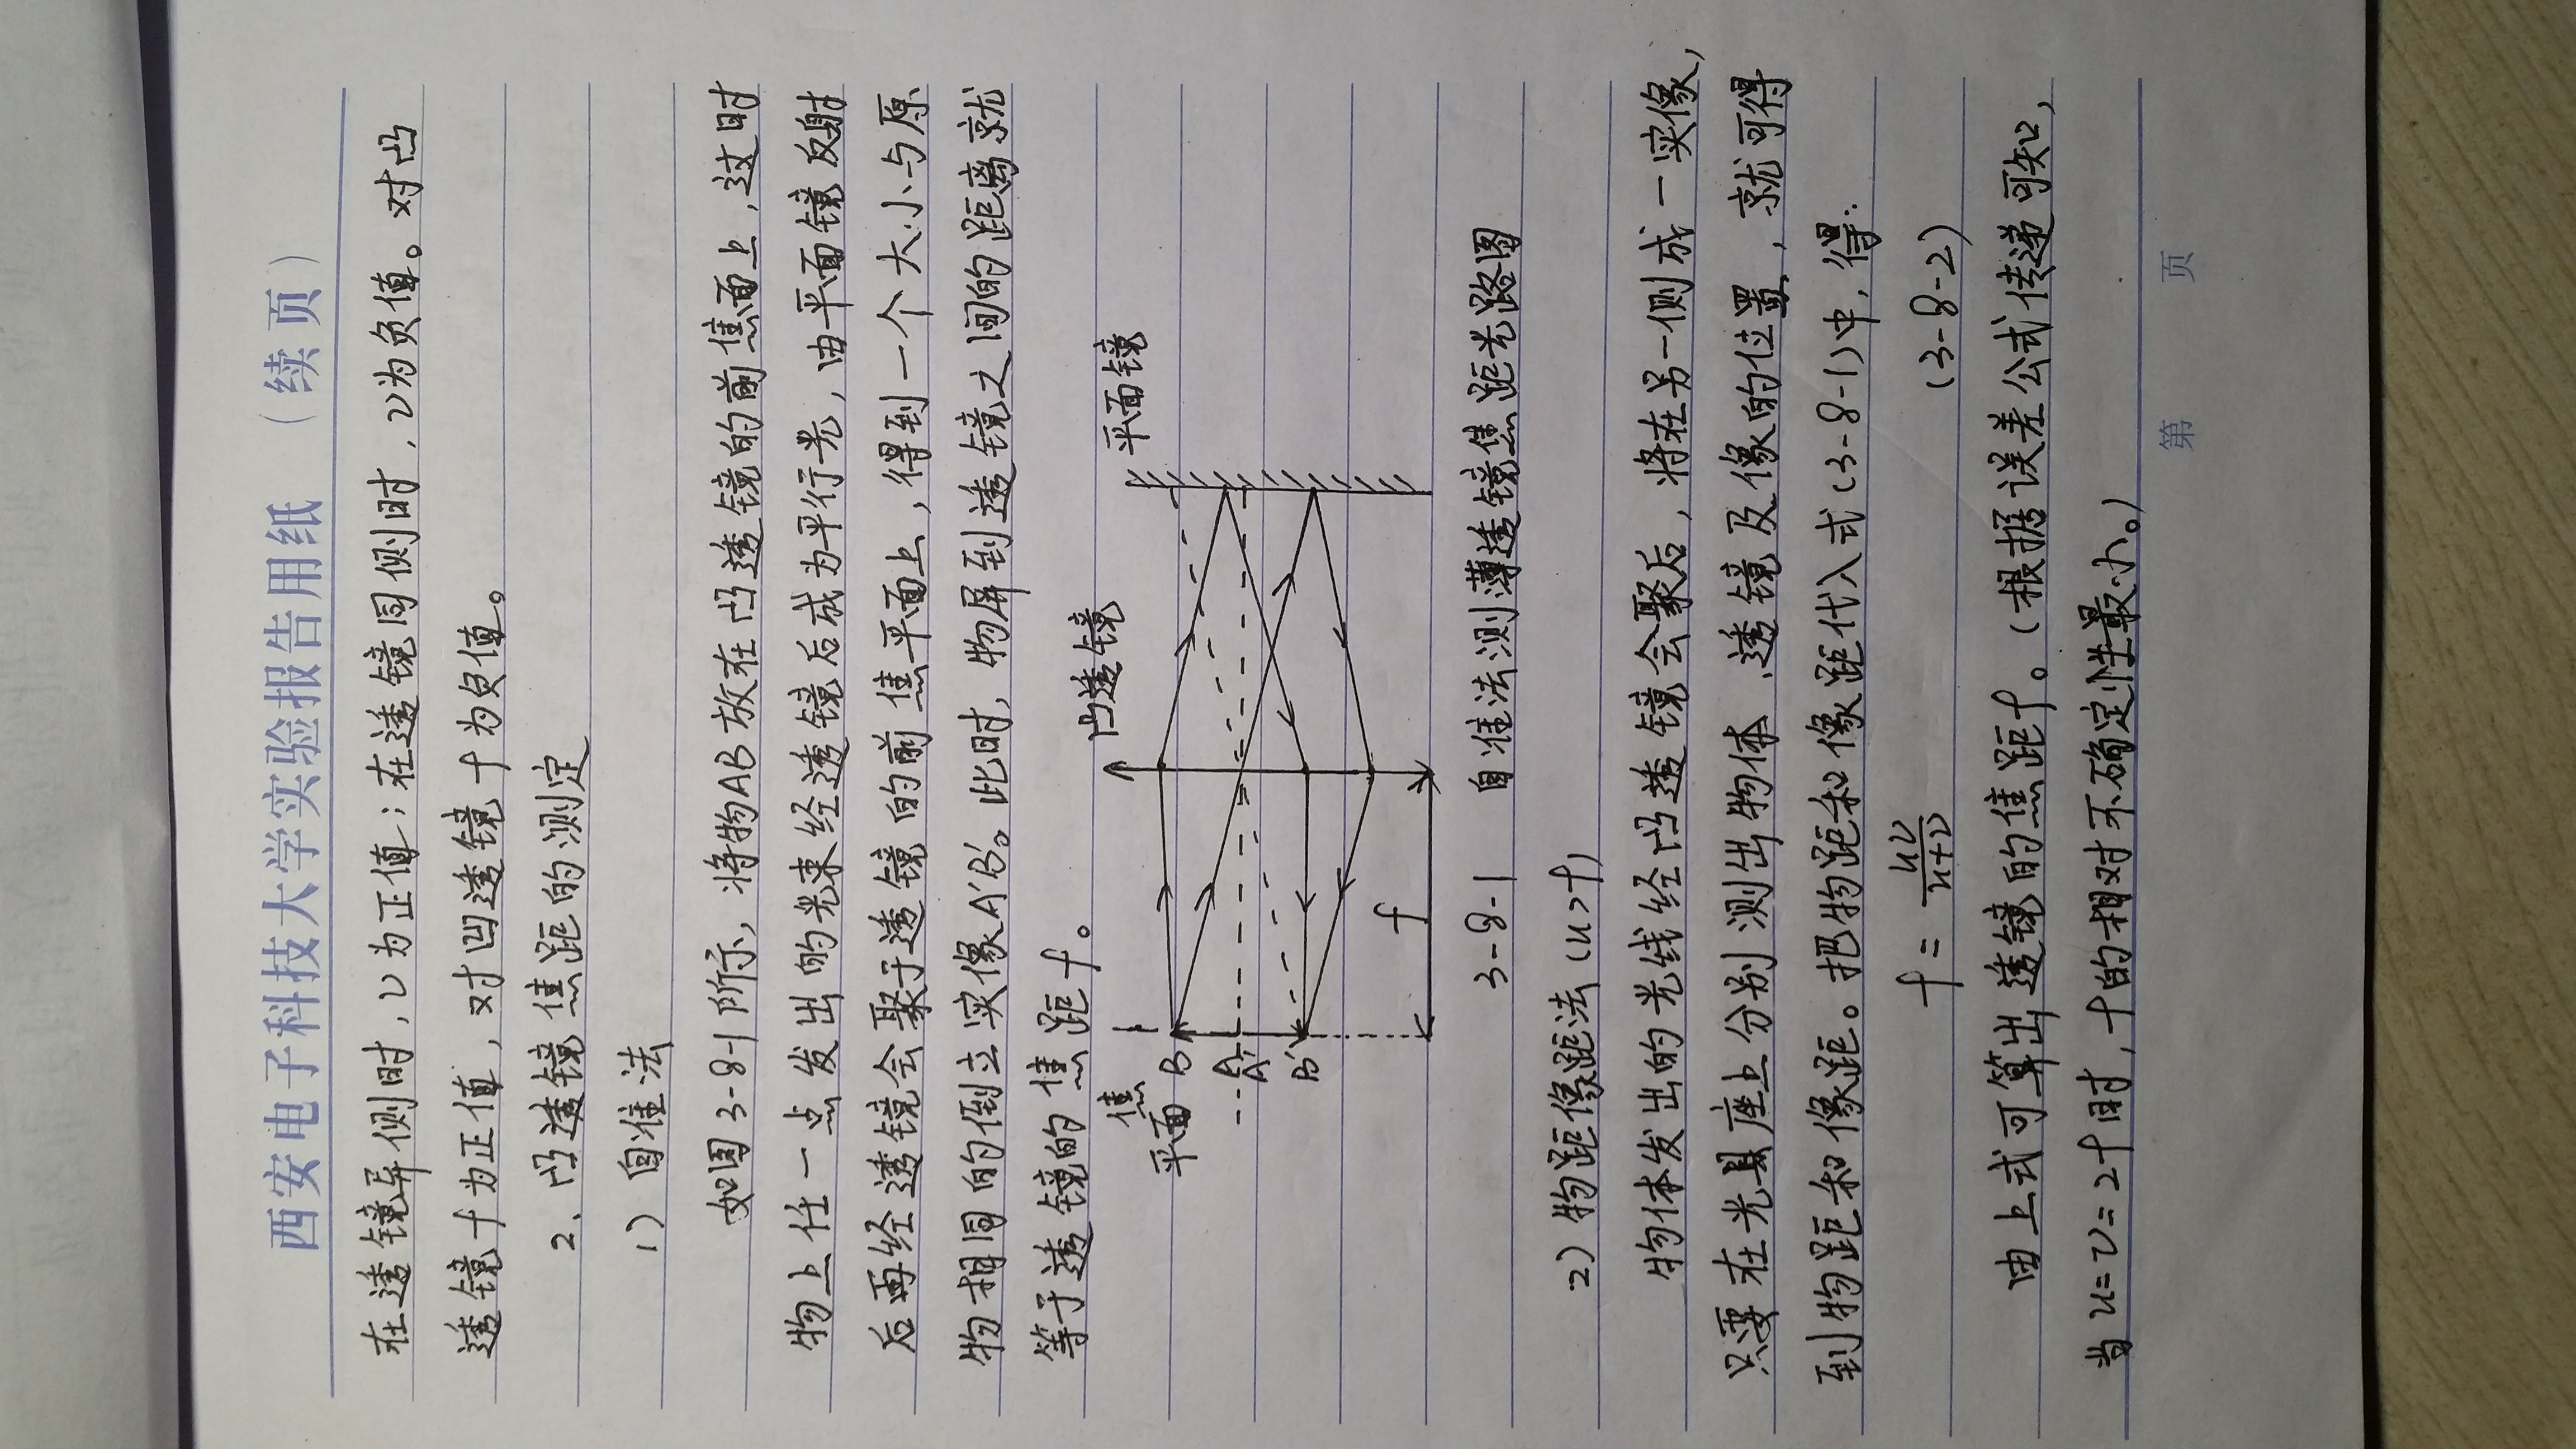 西安电子科技大学实验报告用纸 （续 页）
在透镜异侧时，v为正值；在透镜同侧时，v为负值。对凸
透镜f为正值，对凹透镜f为负值。
2、凸透镜焦距的测定
1）自准法
如图3-8-1所示，将物AB放在凸透镜的前焦面上，这时
物上任一点发出的光束经透镜后成为平行光，由平面镜反射
后再经透镜会聚于透镜的前焦平面上，得到一个大小与原
物相同的倒立实像A'B'。此时，物屏到透镜之间的距离就
等于透镜的焦距f。
凸透镜 平面镜
焦
平面
B
A
A'
B'
f
3-8-1 自准法测薄透镜焦距光路图
2）物距像距法（u>f）
物体发出的光线经凸透镜会聚后，将在另一侧成一实像，
只要在光具座上分别测出物体、透镜及像的位置，就可得
到物距和像距。把物距和像距代入式(3-8-1)中，得：
f = uv/(u+v) (3-8-2)
由上式可算出透镜的焦距f。（根据误差公式传递可知，
当u=v=2f时，f的相对不确定性最小。）
第 页